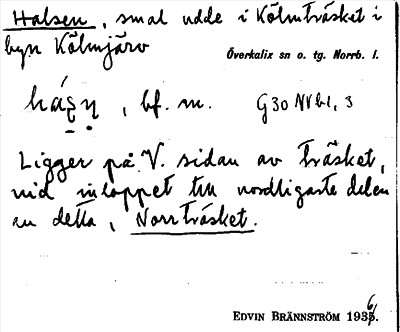 Halsen, smal udde i Kölmträsket i
byn Kölmjärv
Överkalix sn o. tg. Norrb. l.
bf. m. G30 NV b1, 3
Ligger på V. sidan av träsket,
vid inloppet till nordligaste delen
av detta, Norrträsket.
EDVIN BRÄNNSTRÖM 1936.